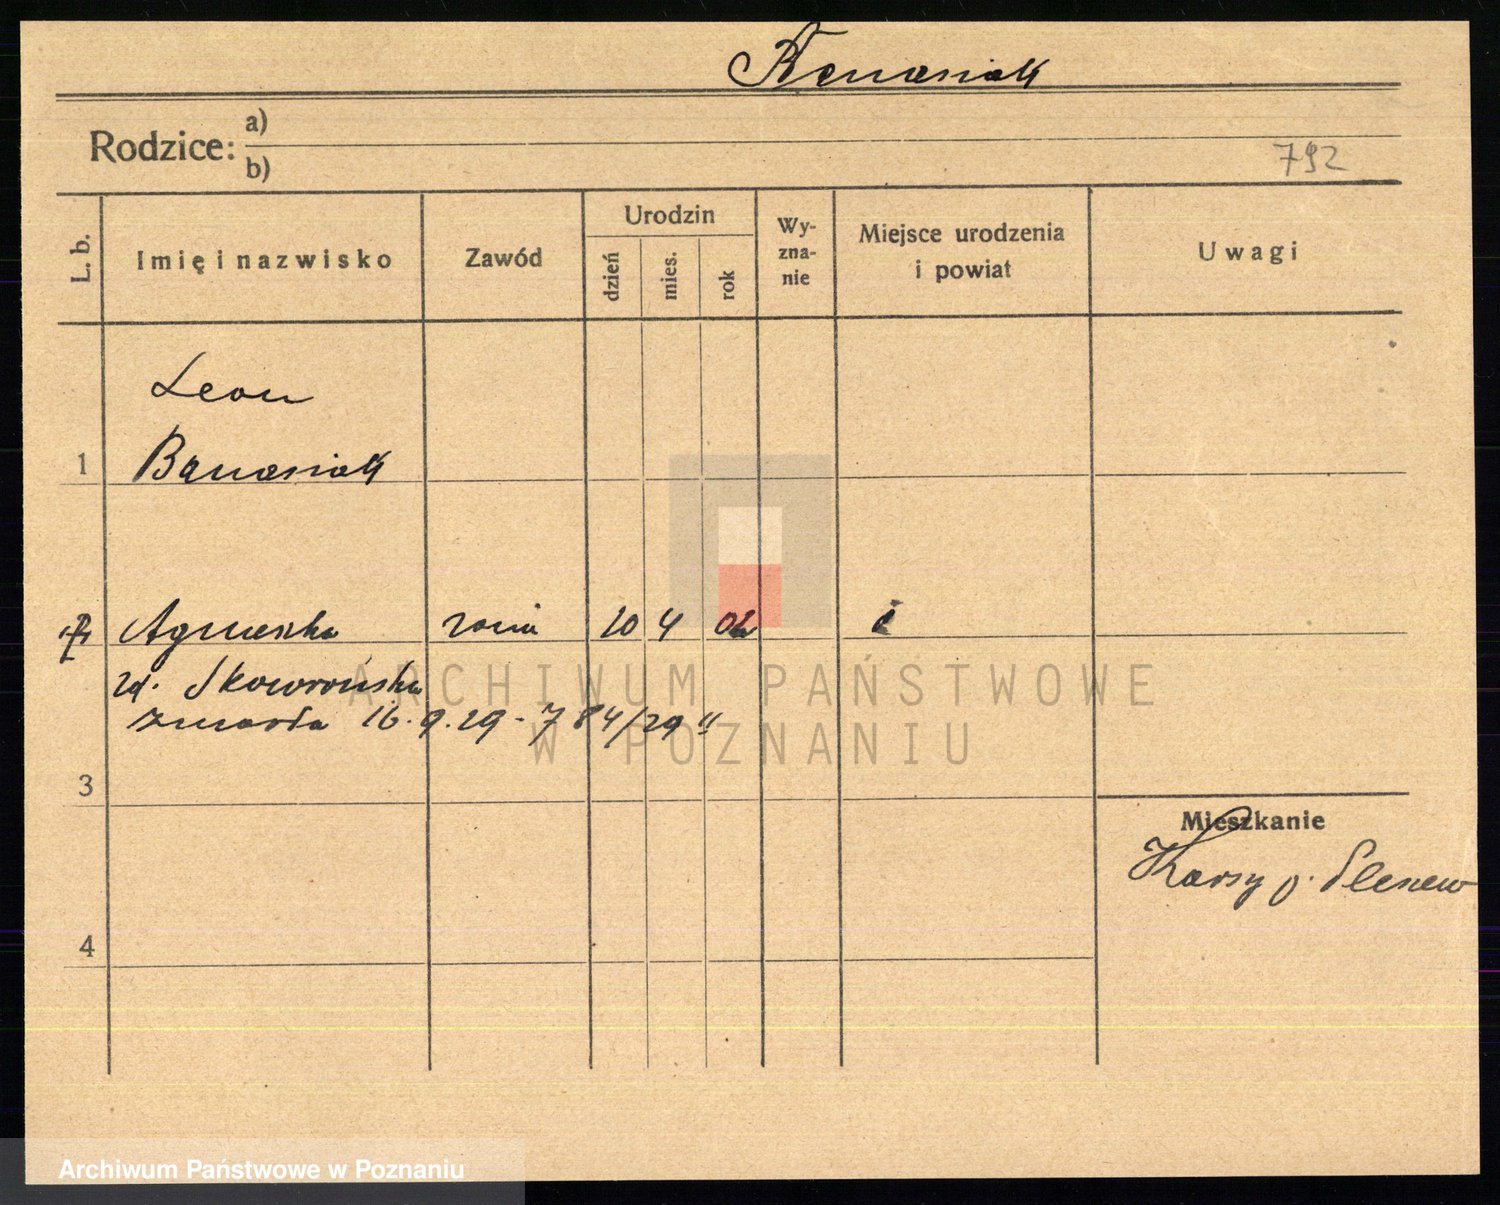 Banasiak
Rodzice: a)
b)
792
L. b.
Imię i nazwisko
Zawód
Urodzin
dzień
mies.
rok
Wy-
zna-
nie
Miejsce urodzenia
i powiat
Uwagi
Leon
1 Banasiak
Agnieszka 10 4 02
Skowrońska
zmarła 16.9.29 - 784/29 II
3
Mieszkanie
Karsy p.
4
ARCHIWUM PAŃSTWOWE
W POZNANIU
Archiwum Państwowe w Poznaniu